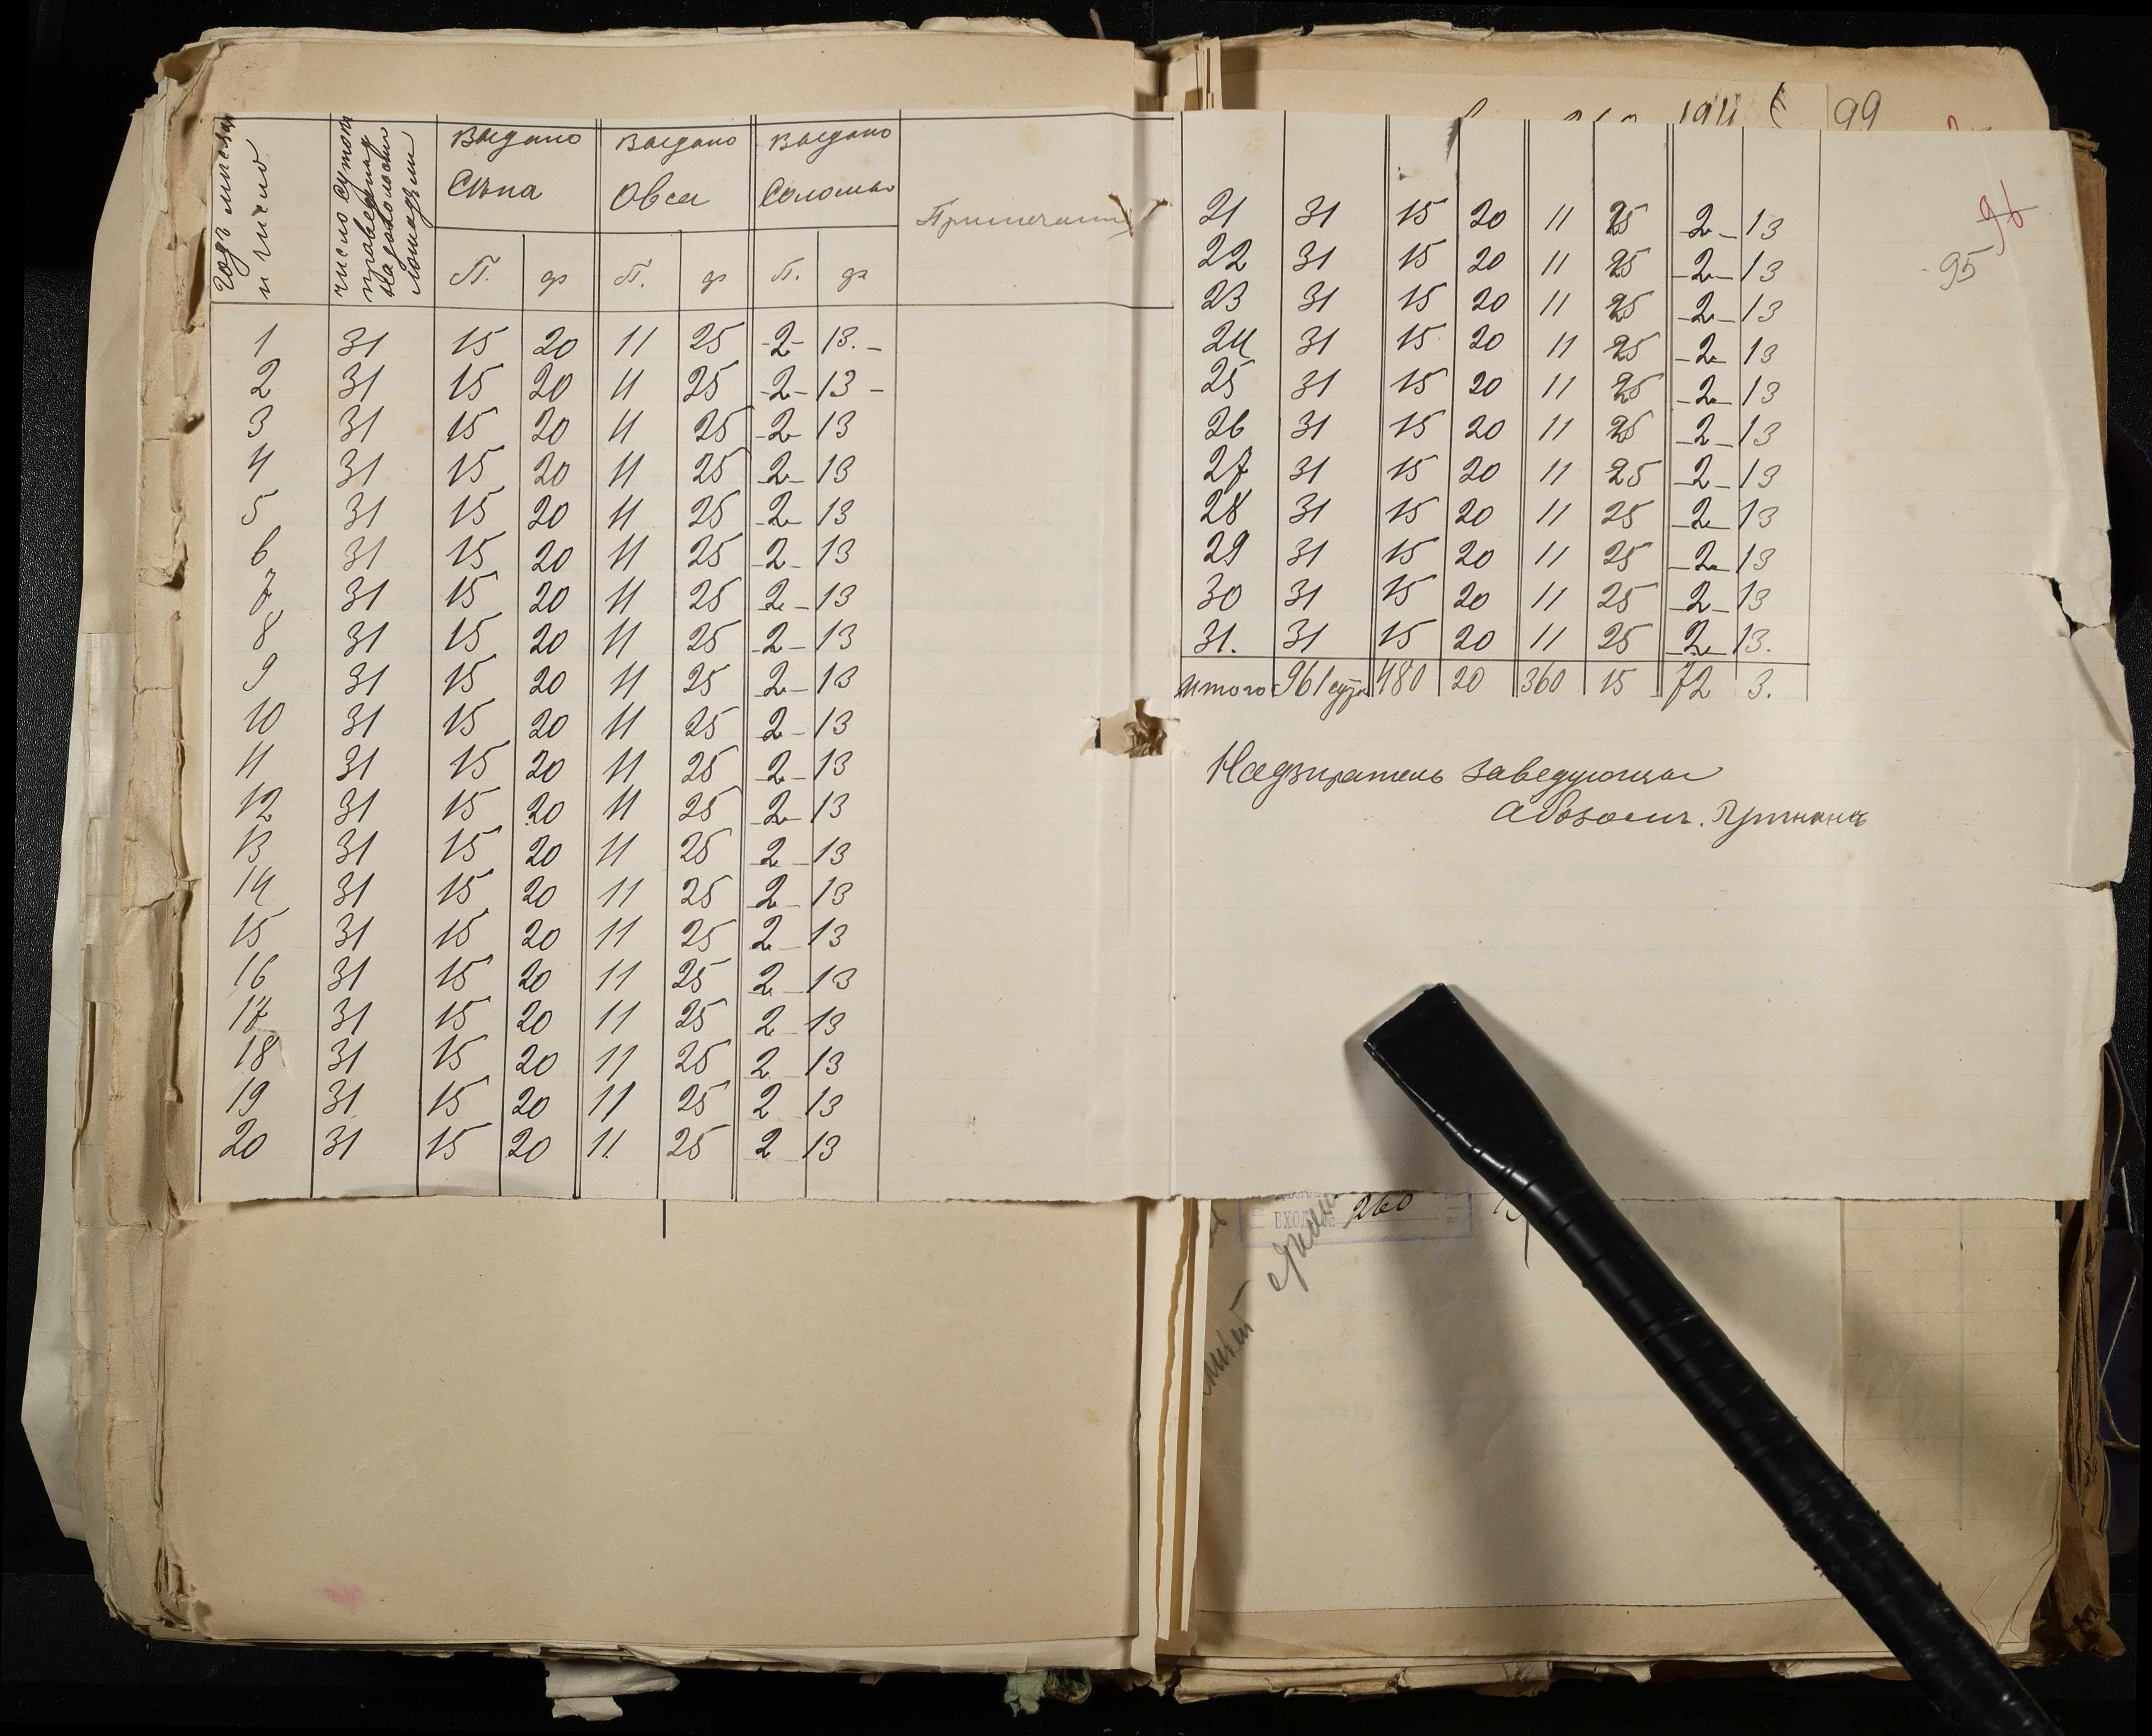 Годъ месяцъ и число | число сутокъ проведеныхъ на довольствіи лошадьми | Выдано Сѣна | Выдано Овса | Выдано Соломы | Примечаніе
П. | ф | П. | ф | П. | ф
1 31 15 20 11 25 -2- 13. -
2 31 15 20 11 25 -2- 13 -
3 31 15 20 11 25 -2- 13
4 31 15 20 11 25 -2- 13
5 31 15 20 11 25 -2- 13
6 31 15 20 11 25 -2- 13
7 31 15 20 11 25 2 - 13
8 31 15 20 11 25 -2- 13
9 31 15 20 11 25 2 - 13
10 31 15 20 11 25 2 - 13
11 31 15 20 11 25 2 - 13
12 31 15 20 11 25 2 - 13
13 31 15 20 11 25 2 - 13
14 31 15 20 11 25 2 - 13
15 31 15 20 11 25 2 - 13
16 31 15 20 11 25 2 - 13
17 31 15 20 11 25 2 - 13
18 31 15 20 11 25 2 - 13
19 31 15 20 11 25 2 - 13
20 31 15 20 11 25 2 13
99
96
95
21 31 15 20 11 25 2 - 13
22 31 15 20 11 25 -2- 13
23 31 15 20 11 25 -2- 13
24 31 15 20 11 25 -2- 13
25 31 15 20 11 25 -2- 13
26 31 15 20 11 25 -2- 13
27 31 15 20 11 25 -2- 13
28 31 15 20 11 25 -2- 13
29 31 15 20 11 25 -2- 13
30 31 15 20 11 25 -2- 13
31. 31 15 20 11 25 -2- 13.
Итого 961 сут 480 20 360 15 72 3.
Надзиратель заведующи
абозомъ.
260